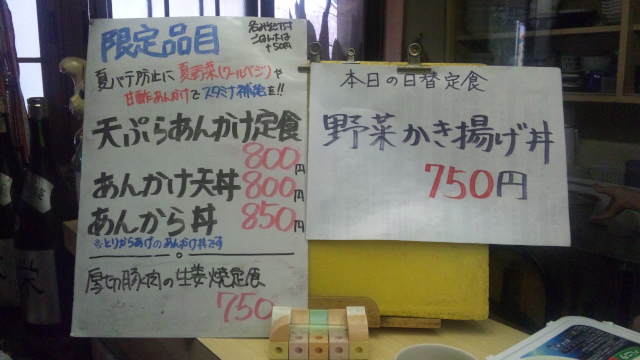 限定品目
夏バテ防止に 夏野菜(クールベジ)や
甘酢あんかけでスタミナ補給を!!
天ぷらあんかけ定食
800円
あんかけ天丼 800円
あんから丼 850円
※とりからあげのあんかけ丼です
厚切豚肉の生姜焼定食
750
本日の日替定食
野菜かき揚げ丼
750円